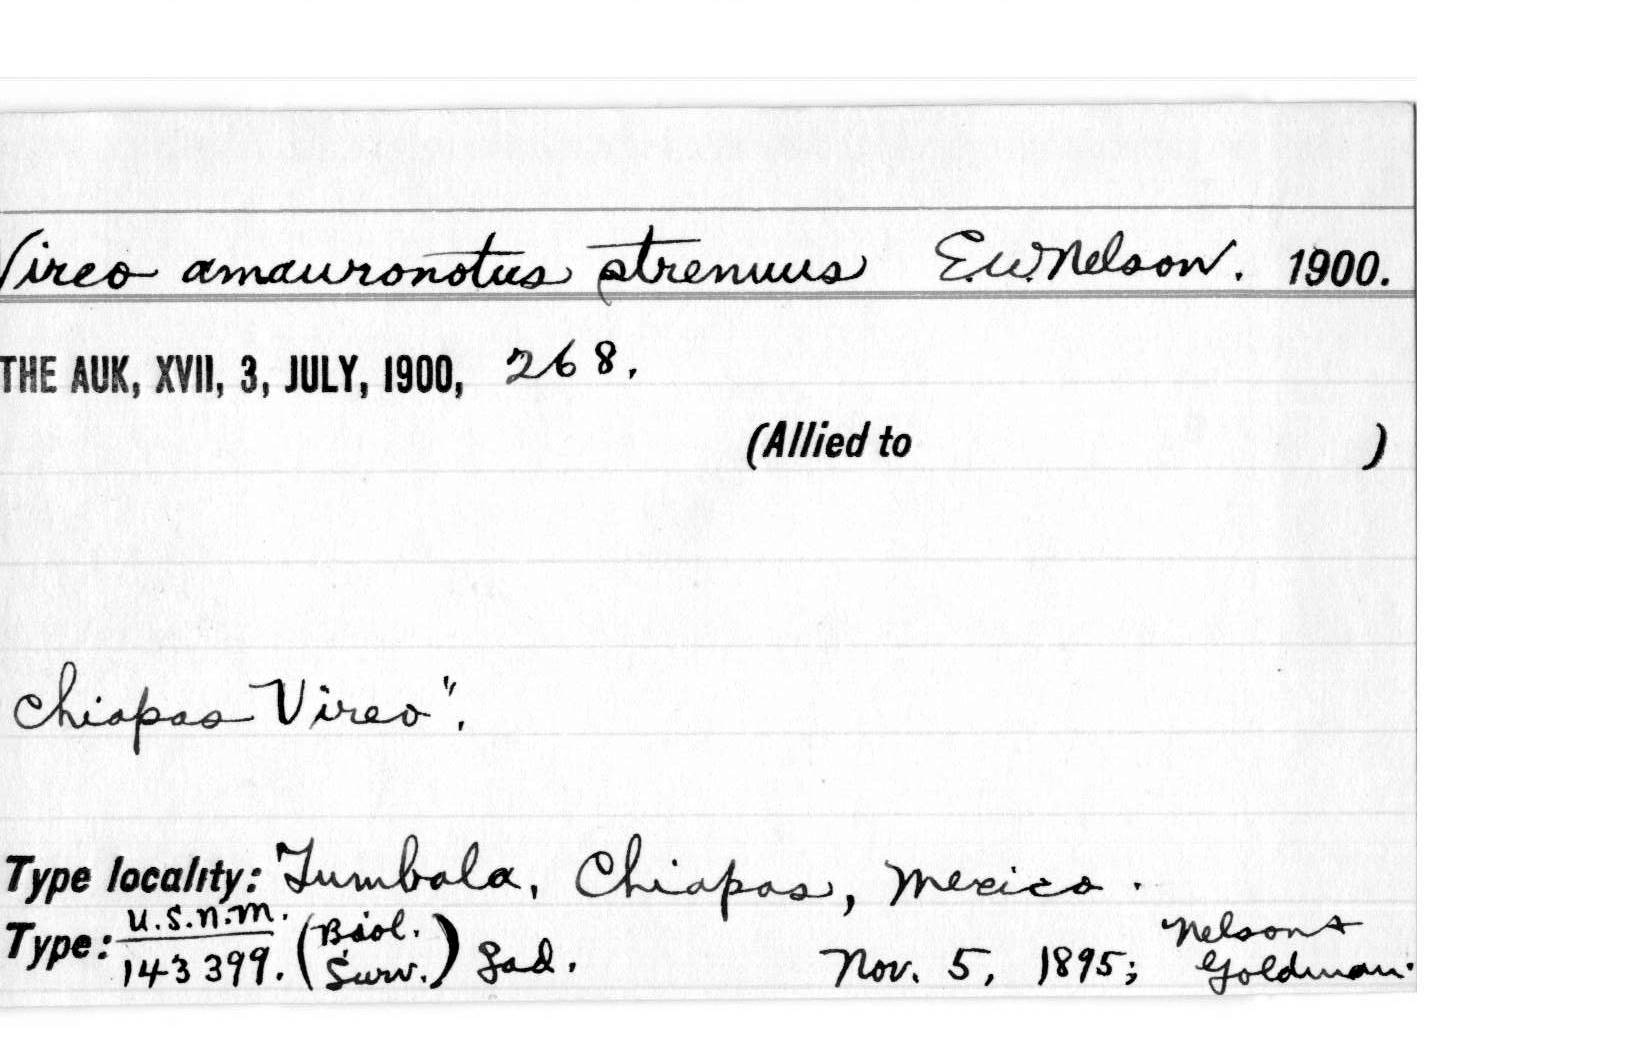 Vireo amauronotus strenuus E.W. Nelson. 1900.
THE AUK, XVII, 3, JULY, 1900, 268.
(Allied to )
Chiapas Vireo".
Type locality: Tumbala, Chiapas, Mexico.
Type: U.S.N.M. 143399. (Biol. Surv.) ad. Nov. 5, 1895; Nelson & Goldman.